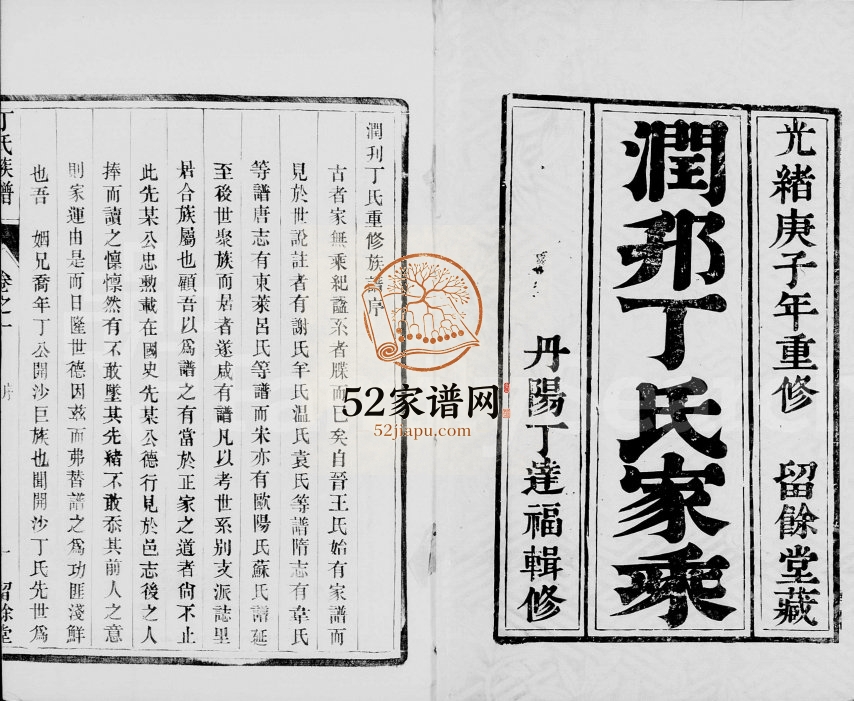 光緒庚子年重修 留餘堂藏
潤邦丁氏家乘
丹陽丁達福輯修
潤刋丁氏重修族譜序
古者家無乘紀諡系者牒而已矣自晉王氏始有家譜而
見於世說註者有謝氏羊氏温氏袁氏等譜隋志有韋氏
等譜唐志有東萊呂氏等譜而朱亦有歐陽氏蘇氏譜延
至後世聚族而居者遂咸有譜凡以考世系别支派誌里
居合族屬也顧吾以爲譜之有當於正家之道者尙不止
此先某公忠勲載在國史先某公德行見於邑志後之人
捧而讀之懍懍然有不敢墜其先緒不敢忝其前人之意
則家運由是而日隆世德因兹而弗替譜之爲功匪淺鮮
也吾 姻兄喬年丁公開沙巨族也聞開沙丁氏先世爲
丁氏族譜 卷之一 序 一 留餘堂
52家谱网
52jiapu.com